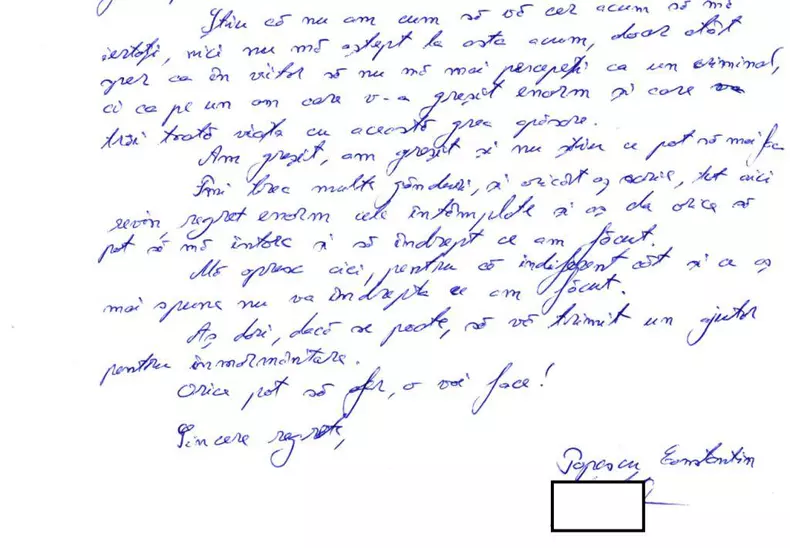 Știu că nu am cum să vă cer acum să mă
iertați, nici nu mă aștept la asta acum, doar atât
sper ca în viitor să nu mă mai percepeți ca un criminal,
ci ca pe un om care v-a greșit enorm și care va
trăi toată viața cu această grea apăsare.
Am greșit, am greșit și nu știu ce pot să mai fac
Îmi trec multe gânduri, și oricât aș scrie, tot aici
revin, regret enorm cele întâmplate și aș da orice să
pot să mă întorc și să îndrept ce am făcut.
Mă opresc aici, pentru că indiferent cât și ce aș
mai spune nu va îndrepta ce am făcut.
Aș dori, dacă se poate, să vă trimit un ajutor
pentru înmormântare.
Orice pot să ofer, o voi face!
Sincere regrete,
Popescu Constantin